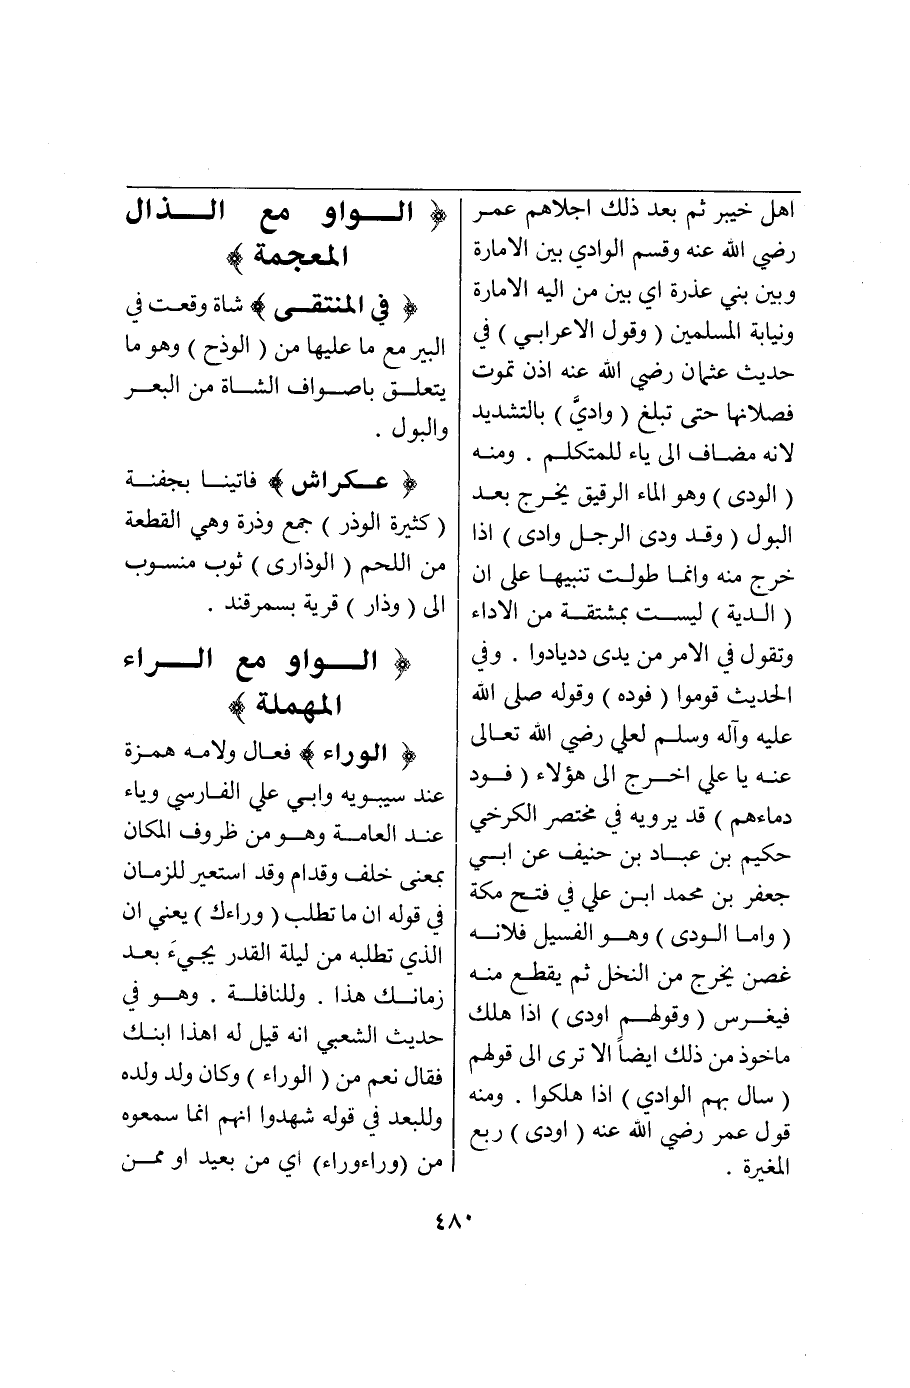 اهل خيبر ثم بعد ذلك اجلاهم عمر
رضي الله عنه وقسم الوادي بين الامارة
وبين بني عذرة اي بين من اليه الامارة
ونيابة المسلمين ( وقول الاعرابي ) في
حديث عثمان رضي الله عنه اذن تموت
فصلانها حتى تبلغ ( واديَّ ) بالتشديد
لانه مضاف الى ياء للمتكلم . ومنه
( الودى ) وهو الماء الرقيق يخرج بعد
البول ( وقد ودى الرجل وادى ) اذا
خرج منه وانما طولت تنبيها على ان
( الدية ) ليست بمشتقة من الاداء
وتقول في الامر من يدى دديادوا . وفي
الحديث قوموا ( فوده ) وقوله صلى الله
عليه وآله وسلم لعلي رضي الله تعالى
عنه يا علي اخرج الى هؤلاء ( فود
دماءهم ) قد يرويه في مختصر الكرخي
حكيم بن عباد بن حنيف عن ابي
جعفر بن محمد ابن علي في فتح مكة
( واما الودى ) وهو الفسيل فلانه
غصن يخرج من النخل ثم يقطع منه
فيغرس ( وقولهم اودى ) اذا هلك
ماخوذ من ذلك ايضاً الا ترى الى قولهم
( سال بهم الوادي ) اذا هلكوا . ومنه
قول عمر رضي الله عنه ( اودى ) ربع
المغيرة .
﴿ الواو مع الذال
المعجمة ﴾
﴿ في المنتقى ﴾ شاة وقعت في
البير مع ما عليها من ( الوذح ) وهو ما
يتعلق باصواف الشاة من البعر
والبول .
﴿ عكراش ﴾ فاتينا بجفنة
( كثيرة الوذر ) جمع وذرة وهي القطعة
من اللحم ( الوذارى ) ثوب منسوب
الى ( وذار ) قرية بسمرقند .
﴿ الواو مع الراء
المهملة ﴾
﴿ الوراء ﴾ فعال ولامه همزة
عند سيبويه وابي علي الفارسي وياء
عند العامة وهو من ظروف المكان
بمعنى خلف وقدام وقد استعير للزمان
في قوله ان ما تطلب ( وراءك ) يعني ان
الذي تطلبه من ليلة القدر يجيءَ بعد
زمانك هذا . وللنافلة . وهو في
حديث الشعبي انه قيل له اهذا ابنك
فقال نعم من ( الوراء ) وكان ولد ولده
وللبعد في قوله شهدوا انهم انما سمعوه
من (وراءوراء) اي من بعيد او ممن
٤٨٠